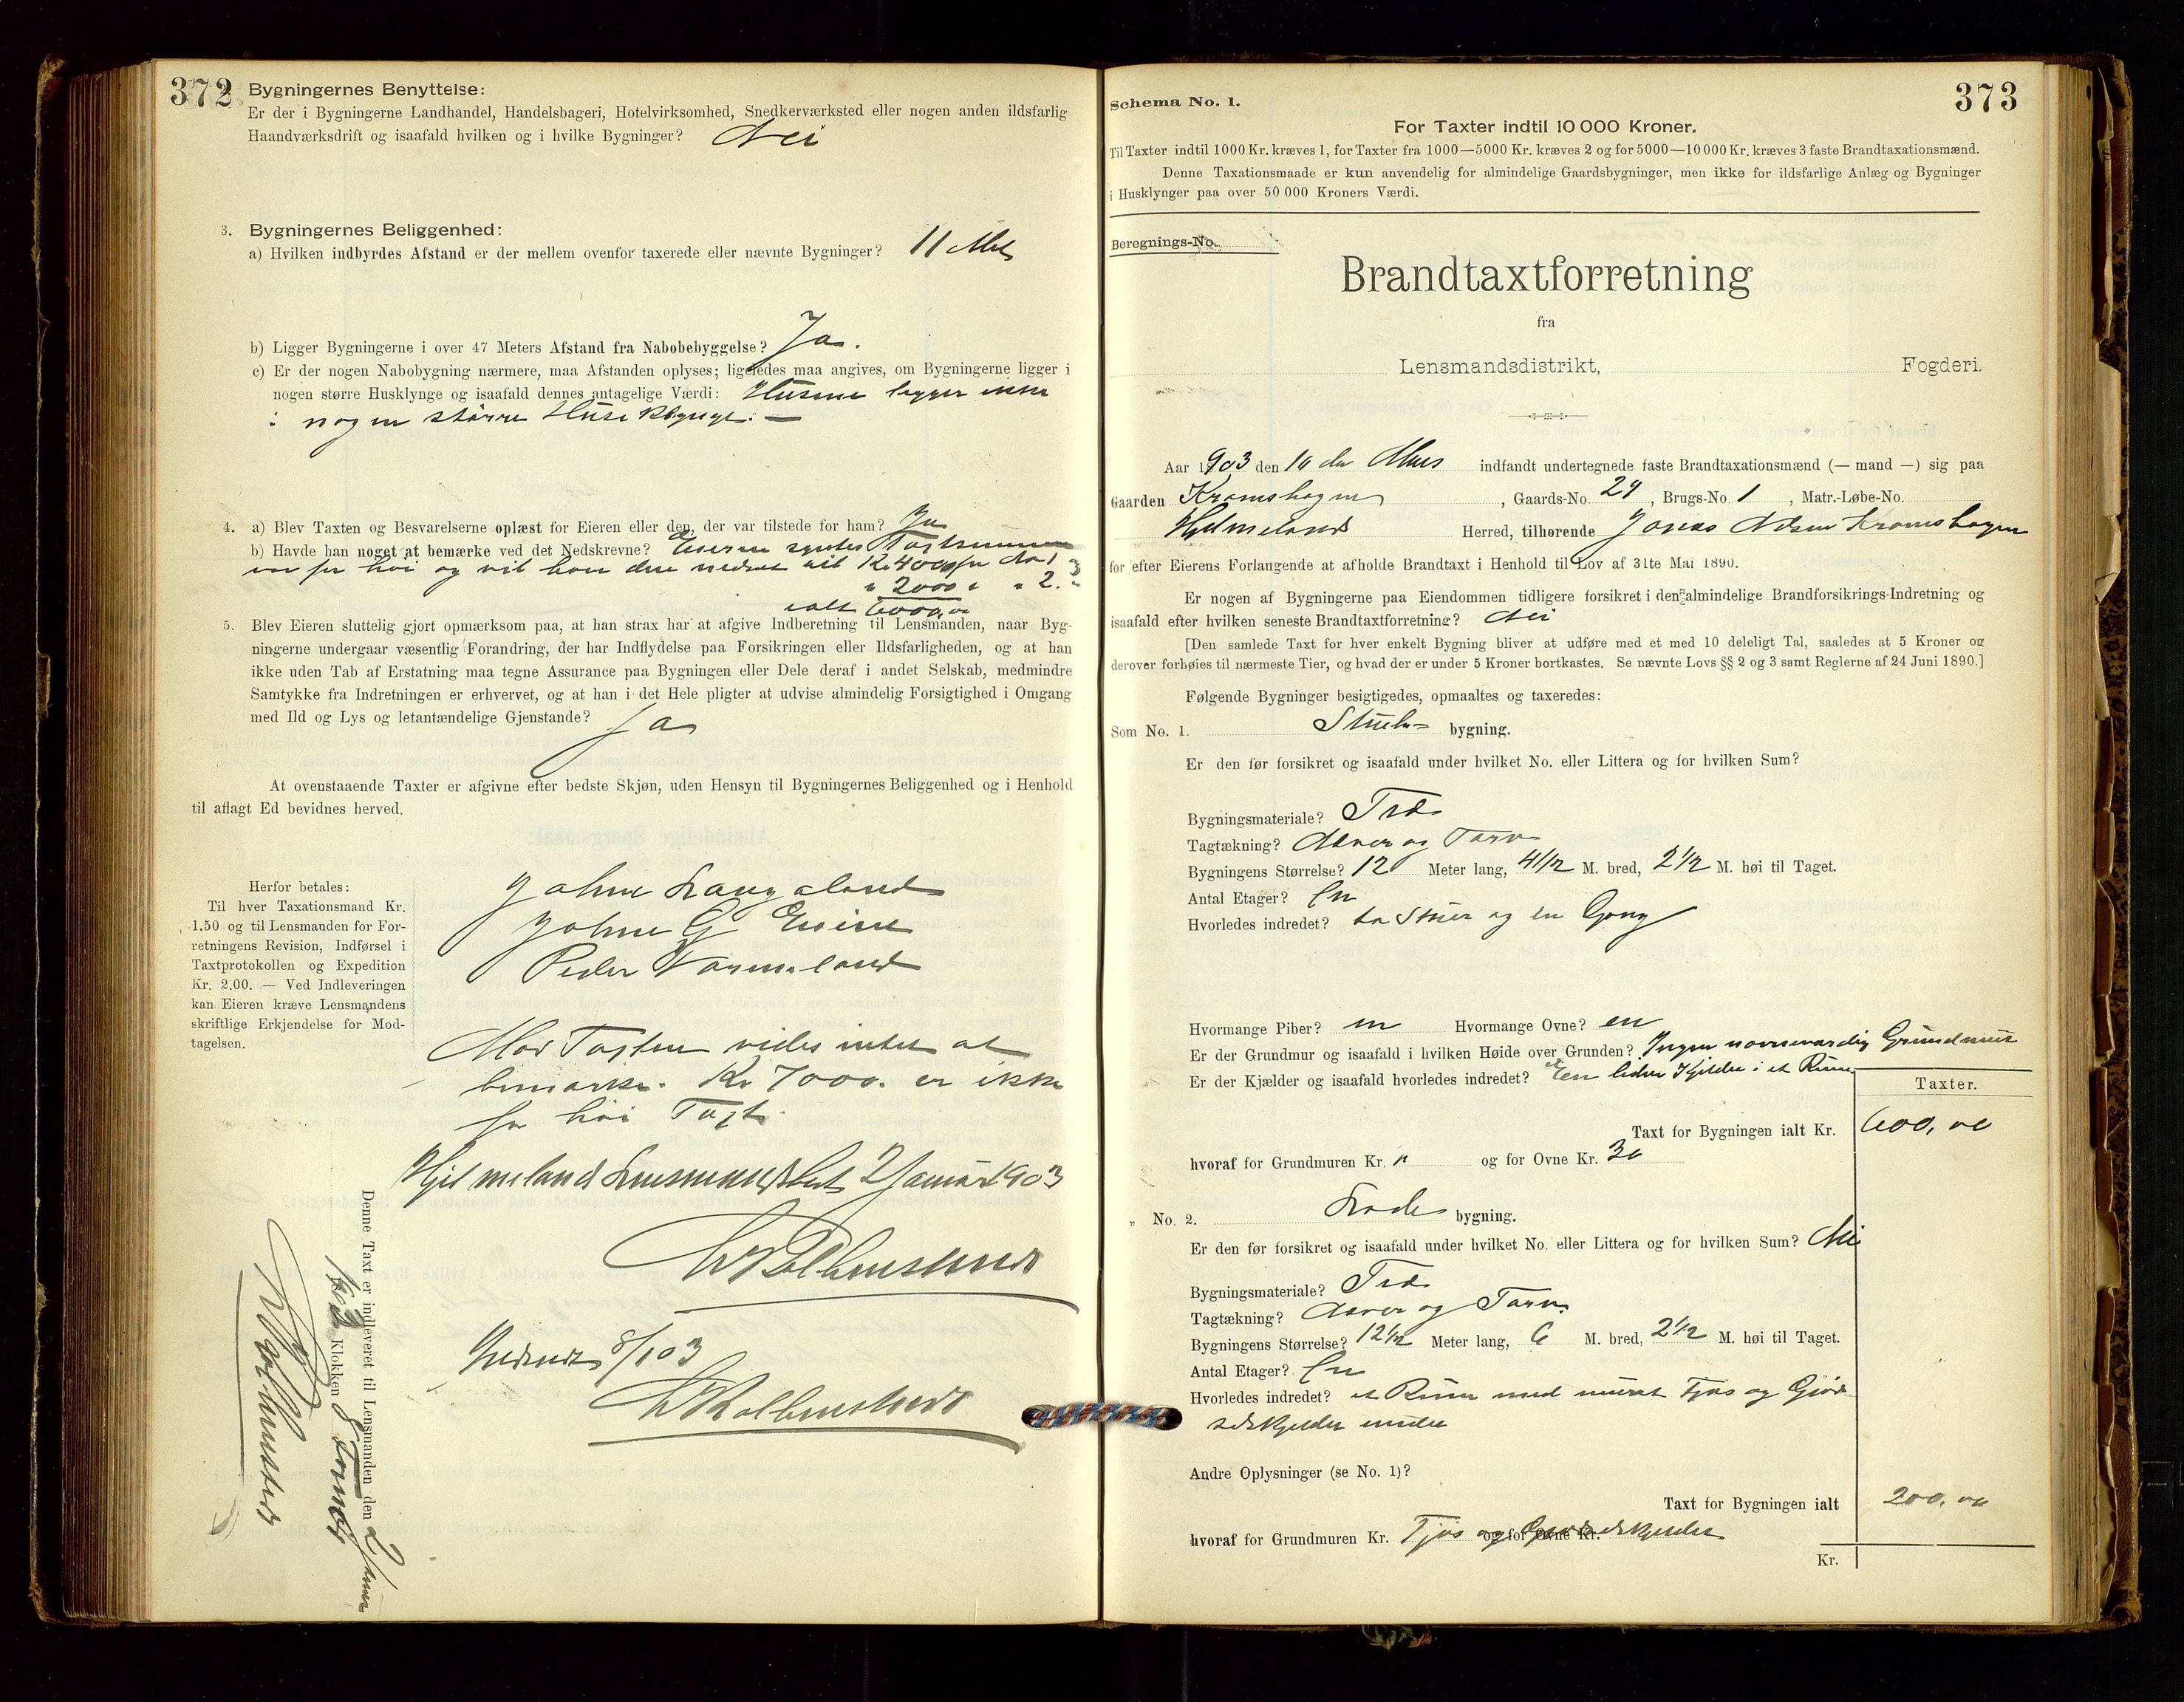 372
Bygningernes Benyttelse:
Er der i Bygningerne Landhandel, Handelsbageri, Hotelvirksomhed, Snedkerværksted eller nogen anden ildsfarlig
Haandværksdrift og isaafald hvilken og i hvilke Bygninger? Nei
3. Bygningernes Beliggenhed:
a) Hvilken indbyrdes Afstand er der mellem ovenfor taxerede eller nævnte Bygninger? 11 Met
b) Ligger Bygningerne i over 47 Meters Afstand fra Nabobebyggelse? Ja.
c) Er der nogen Nabobygning nærmere, maa Afstanden oplyses; ligeledes maa angives, om Bygningerne ligger i
nogen større Husklynge og isaafald dennes antagelige Værdi: Husene legger ikke
i nogen större Huseklynge. —
4. a) Blev Taxten og Besvarelserne oplæst for Eieren eller den, der var tilstede for ham? Ja
b) Havde han noget at bemærke ved det Nedskrevne? Eieren syntes Taxtsummen
var for höi og vil have den nedsat til Kr. 4000 for No 1
" 2000 " " 2. "
ialt 6000,00
5. Blev Eieren sluttelig gjort opmærksom paa, at han strax har at afgive Indberetning til Lensmanden, naar Byg-
ningerne undergaar væsentlig Forandring, der har Indflydelse paa Forsikringen eller Ildsfarligheden, og at han
ikke uden Tab af Erstatning maa tegne Assurance paa Bygningen eller Dele deraf i andet Selskab, medmindre
Samtykke fra Indretningen er erhvervet, og at han i det Hele pligter at udvise almindelig Forsigtighed i Omgang
med Ild og Lys og letantændelige Gjenstande? Ja
At ovenstaaende Taxter er afgivne efter bedste Skjøn, uden Hensyn til Bygningernes Beliggenhed og i Henhold
til aflagt Ed bevidnes herved.
Herfor betales:
Til hver Taxationsmand Kr.
1.50 og til Lensmanden for For-
retningens Revision, Indførsel i
Taxtprotokollen og Expedition
Kr. 2.00. — Ved Indleveringen
kan Eieren kræve Lensmandens
skriftlige Erkjendelse for Mod-
tagelsen.
Johne Laugaland
Johne G Eiene
Peder Vormeland
Mod Taxten vides intet at
bemærke. Kr 7000. er ikke
for höi Taxt.
Hjelmeland Lensmandsbest 2 Januar 1903
Denne Taxt er indleveret til Lensmanden den 2 Januar
1903 Klokken 8 Formd
8/1 03
373
Schema No. 1.
For Taxter indtil 10 000 Kroner.
Til Taxter indtil 1000 Kr. kræves 1, for Taxter fra 1000—5000 Kr. kræves 2 og for 5000—10 000 Kr. kræves 3 faste Brandtaxationsmænd.
Denne Taxationsmaade er kun anvendelig for almindelige Gaardsbygninger, men ikke for ildsfarlige Anlæg og Bygninger
i Husklynger paa over 50 000 Kroners Værdi.
Beregnings-No.
Brandtaxtforretning
fra
Lensmandsdistrikt, Fogderi.
Aar 1903 den 10 de Mars indfandt undertegnede faste Brandtaxationsmænd (— mand —) sig paa
Gaarden Kromshagen, Gaards-No. 29, Brugs-No. 1, Matr.-Løbe-No.
Hjelmeland Herred, tilhørende Jonas Kromshagen
for efter Eierens Forlangende at afholde Brandtaxt i Henhold til Lov af 31te Mai 1890.
Er nogen af Bygningerne paa Eiendommen tidligere forsikret i den almindelige Brandforsikrings-Indretning og
isaafald efter hvilken seneste Brandtaxtforretning? Nei
[Den samlede Taxt for hver enkelt Bygning bliver at udføre med et med 10 deleligt Tal, saaledes at 5 Kroner og
derover forhøies til nærmeste Tier, og hvad der er under 5 Kroner bortkastes. Se nævnte Lovs §§ 2 og 3 samt Reglerne af 24 Juni 1890.]
Følgende Bygninger besigtigedes, opmaaltes og taxeredes:
Som No. 1. Stuebygning.
Er den før forsikret og isaafald under hvilket No. eller Littera og for hvilken Sum?
Bygningsmateriale? Træ
Tagtækning? Næver og Torv
Bygningens Størrelse? 12 Meter lang, 4 1/2 M. bred, 2 1/2 M. høi til Taget.
Antal Etager? En
Hvorledes indredet? to Stuer og en Gang
Hvormange Piber? en Hvormange Ovne? en
Er der Grundmur og isaafald i hvilken Høide over Grunden? Ingen nævneværdig Grundmur
Er der Kjælder og isaafald hvorledes indredet? En liden Kjelder i et Rum
Taxter.
Taxt for Bygningen ialt Kr. 600,00
hvoraf for Grundmuren Kr. " og for Ovne Kr. 30
" No. 2. Ladebygning.
Er den før forsikret og isaafald under hvilket No. eller Littera og for hvilken Sum? Nei
Bygningsmateriale? Træ
Tagtækning? Næver og Torv
Bygningens Størrelse? 12 1/2 Meter lang, 6 M. bred, 2 1/2 M. høi til Taget.
Antal Etager? En
Hvorledes indredet? et Rum med muret Fjös og Gjöd-
selskjelder under
Andre Oplysninger (se No. 1)?
Taxt for Bygningen ialt 200,00
hvoraf for Grundmuren Kr. Fjös og Gjödselskjelder og for Ovne Kr.
Kr.